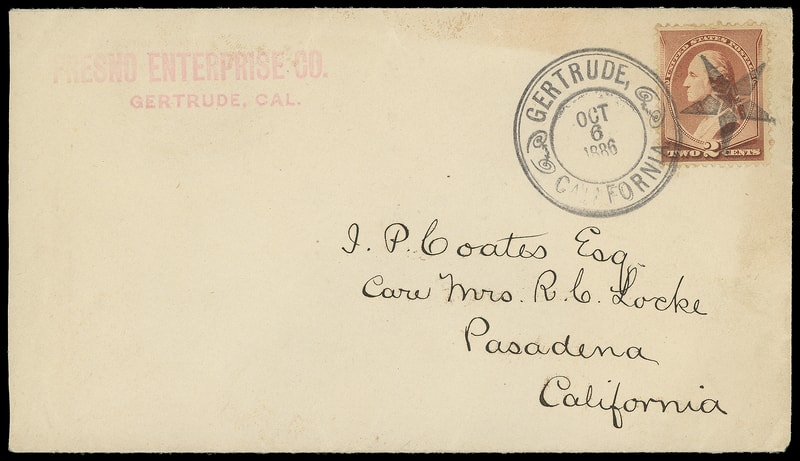 FRESNO ENTERPRISE CO.
GERTRUDE, CAL.
GERTRUDE,
OCT
6
1886
CALIFORNIA
UNITED STATES POSTAGE
TWO 2 CENTS
I. P. Coates Esq.
Care Mrs. R. C. Locke
Pasadena
California